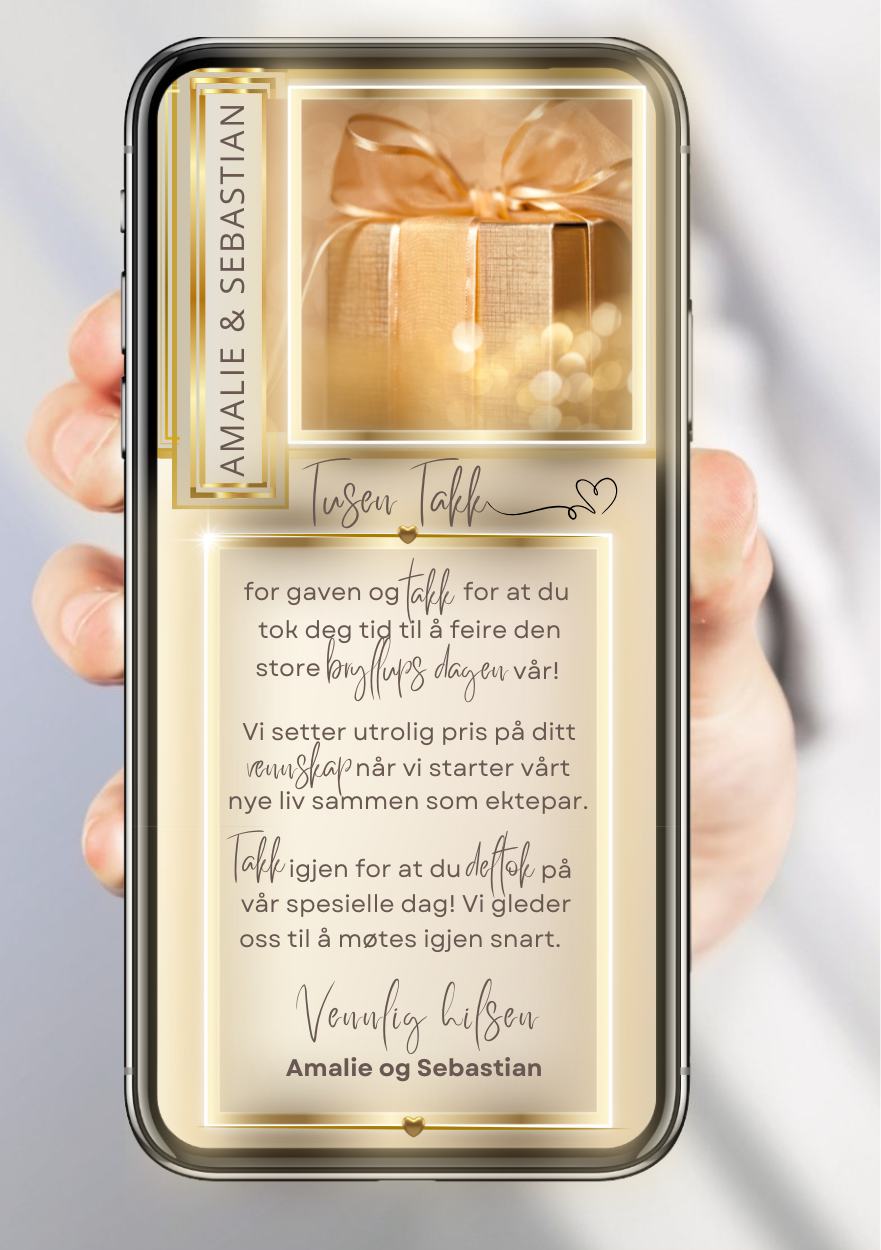 AMALIE & SEBASTIAN
Tusen Takk
for gaven og takk for at du
tok deg tid til å feire den
store bryllups dagen vår!
Vi setter utrolig pris på ditt
vennskap når vi starter vårt
nye liv sammen som ektepar.
Takk igjen for at du deltok på
vår spesielle dag! Vi gleder
oss til å møtes igjen snart.
Vennlig hilsen
Amalie og Sebastian